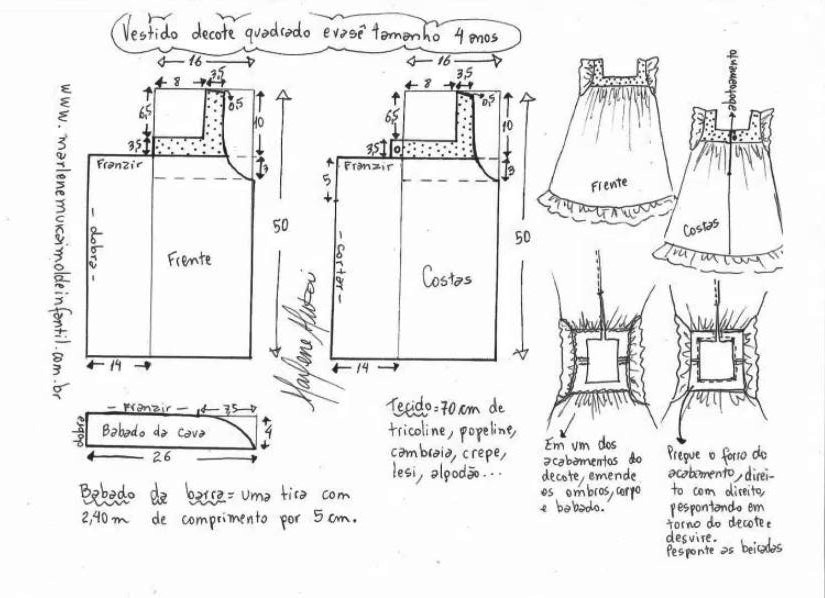 Vestido decote quadrado evasê tamanho 4 anos
www.marlenemukaimoldeinfantil.com.br
16
8
3,5
0,5
6,5
10
3,5
3
Franzir
- dobra -
Frente
50
14
16
8
3,5
0,5
6,5
10
3,5
3
Franzir
5
- cortar -
Costas
50
14
Marlene Mukai
Frente
abotoamento
Costas
- Franzir -
7,5
dobra
Babado da cava
4
26
Babado da barra = uma tira com
2,40 m de comprimento por 5 cm.
Tecido = 70 cm de
tricoline, popeline,
cambraia, crepe,
lesi, algodão...
Em um dos
acabamentos do
decote, emende
os ombros, corpo
e babado.
Pregue o forro do
acabamento, direi-
to com direito,
pespontando em
torno do decote e
desvire.
Pesponte as beiradas